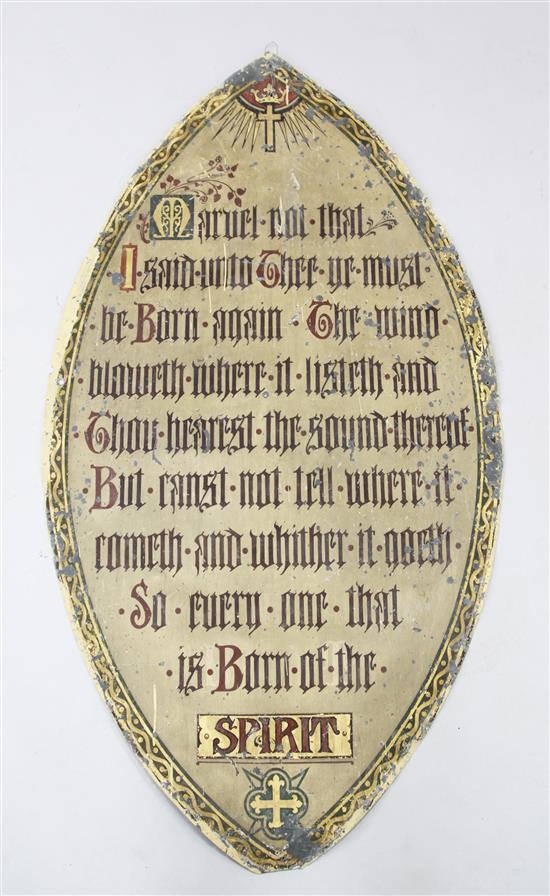 Marvel·not·that
·I·said·unto·Thee·ye·must·
·be·Born·again·The·wind·
·bloweth·where·it·listeth·and
·Thou·hearest·the·sound·thereof·
But·canst·not·tell·where·it·
cometh·and·whither·it·goeth·
·So·every·one·that
·is·Born·of·the·
SPIRIT